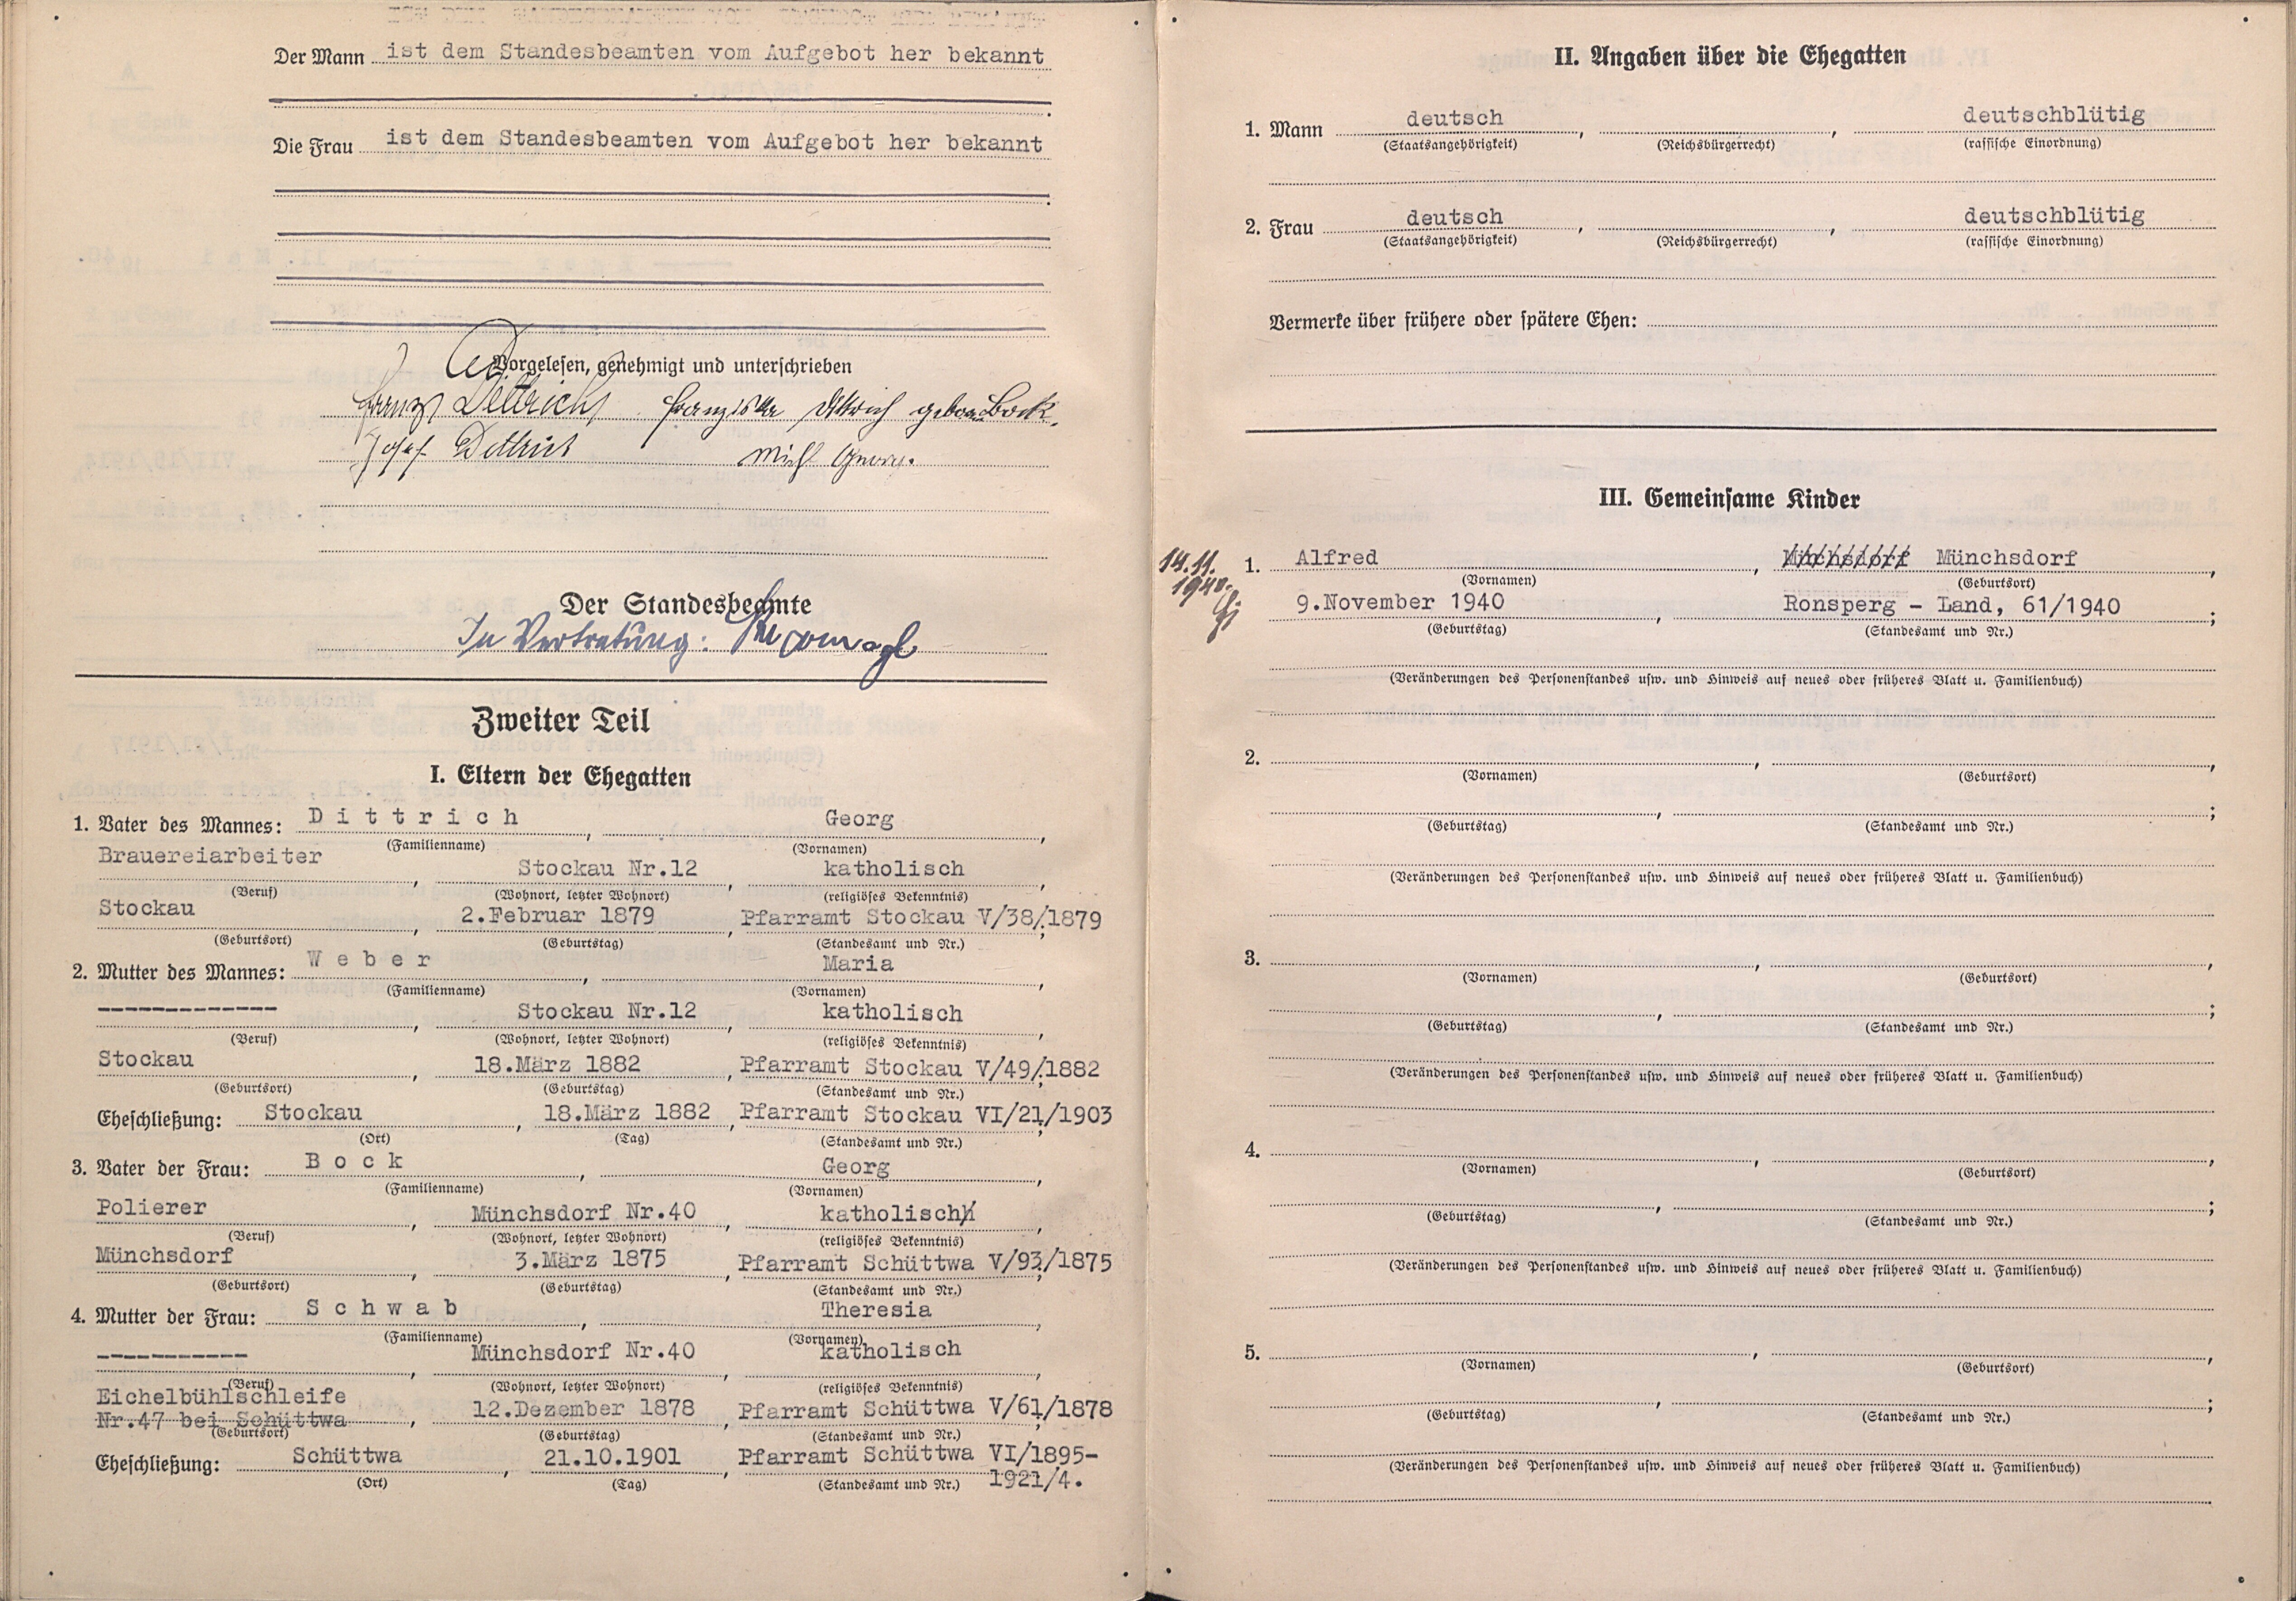 Der Mann ist dem Standesbeamten vom Aufgebot her bekannt
Die Frau ist dem Standesbeamten vom Aufgebot her bekannt
Vorgelesen, genehmigt und unterschrieben
Franz Dittrich Franziska Dittrich geborene Bock.
Josef Dittrich Michl Georg.
Der Standesbeamte
In Vertretung:
Zweiter Teil
I. Eltern der Ehegatten
1. Vater des Mannes: Dittrich, Georg,
(Familienname) (Vornamen)
Brauereiarbeiter, Stockau Nr.12, katholisch,
(Beruf) (Wohnort, letzter Wohnort) (religiöses Bekenntnis)
Stockau, 2.Februar 1879, Pfarramt Stockau V/38/1879;
(Geburtsort) (Geburtstag) (Standesamt und Nr.)
2. Mutter des Mannes: Weber, Maria,
(Familienname) (Vornamen)
-------------, Stockau Nr.12, katholisch,
(Beruf) (Wohnort, letzter Wohnort) (religiöses Bekenntnis)
Stockau, 18.März 1882, Pfarramt Stockau V/49/1882;
(Geburtsort) (Geburtstag) (Standesamt und Nr.)
Eheschließung: Stockau, 18.März 1882, Pfarramt Stockau VI/21/1903;
(Ort) (Tag) (Standesamt und Nr.)
3. Vater der Frau: Bock, Georg,
(Familienname) (Vornamen)
Polierer, Münchsdorf Nr.40, katholisch,
(Beruf) (Wohnort, letzter Wohnort) (religiöses Bekenntnis)
Münchsdorf, 3.März 1875, Pfarramt Schüttwa V/93/1875;
(Geburtsort) (Geburtstag) (Standesamt und Nr.)
4. Mutter der Frau: Schwab, Theresia,
(Familienname) (Vornamen)
-----------, Münchsdorf Nr.40, katholisch,
(Beruf) (Wohnort, letzter Wohnort) (religiöses Bekenntnis)
Eichelbühlschleife
Nr.47 bei Schüttwa, 12.Dezember 1878, Pfarramt Schüttwa V/61/1878;
(Geburtsort) (Geburtstag) (Standesamt und Nr.)
Eheschließung: Schüttwa, 21.10.1901, Pfarramt Schüttwa VI/1895-
(Ort) (Tag) (Standesamt und Nr.) 1921/4.
II. Angaben über die Ehegatten
1. Mann deutsch, , deutschblütig
(Staatsangehörigkeit) (Reichsbürgerrecht) (rassische Einordnung)
2. Frau deutsch, , deutschblütig
(Staatsangehörigkeit) (Reichsbürgerrecht) (rassische Einordnung)
Vermerke über frühere oder spätere Ehen:
III. Gemeinsame Kinder
14.11.
1940.
1. Alfred, Münchsdorf Münchsdorf,
(Vornamen) (Geburtsort)
9.November 1940, Ronsperg - Land, 61/1940;
(Geburtstag) (Standesamt und Nr.)
(Veränderungen des Personenstandes usw. und Hinweis auf neues oder früheres Blatt u. Familienbuch)
2. , ,
(Vornamen) (Geburtsort)
, ;
(Geburtstag) (Standesamt und Nr.)
(Veränderungen des Personenstandes usw. und Hinweis auf neues oder früheres Blatt u. Familienbuch)
3. , ,
(Vornamen) (Geburtsort)
, ;
(Geburtstag) (Standesamt und Nr.)
(Veränderungen des Personenstandes usw. und Hinweis auf neues oder früheres Blatt u. Familienbuch)
4. , ,
(Vornamen) (Geburtsort)
, ;
(Geburtstag) (Standesamt und Nr.)
(Veränderungen des Personenstandes usw. und Hinweis auf neues oder früheres Blatt u. Familienbuch)
5. , ,
(Vornamen) (Geburtsort)
, ;
(Geburtstag) (Standesamt und Nr.)
(Veränderungen des Personenstandes usw. und Hinweis auf neues oder früheres Blatt u. Familienbuch)